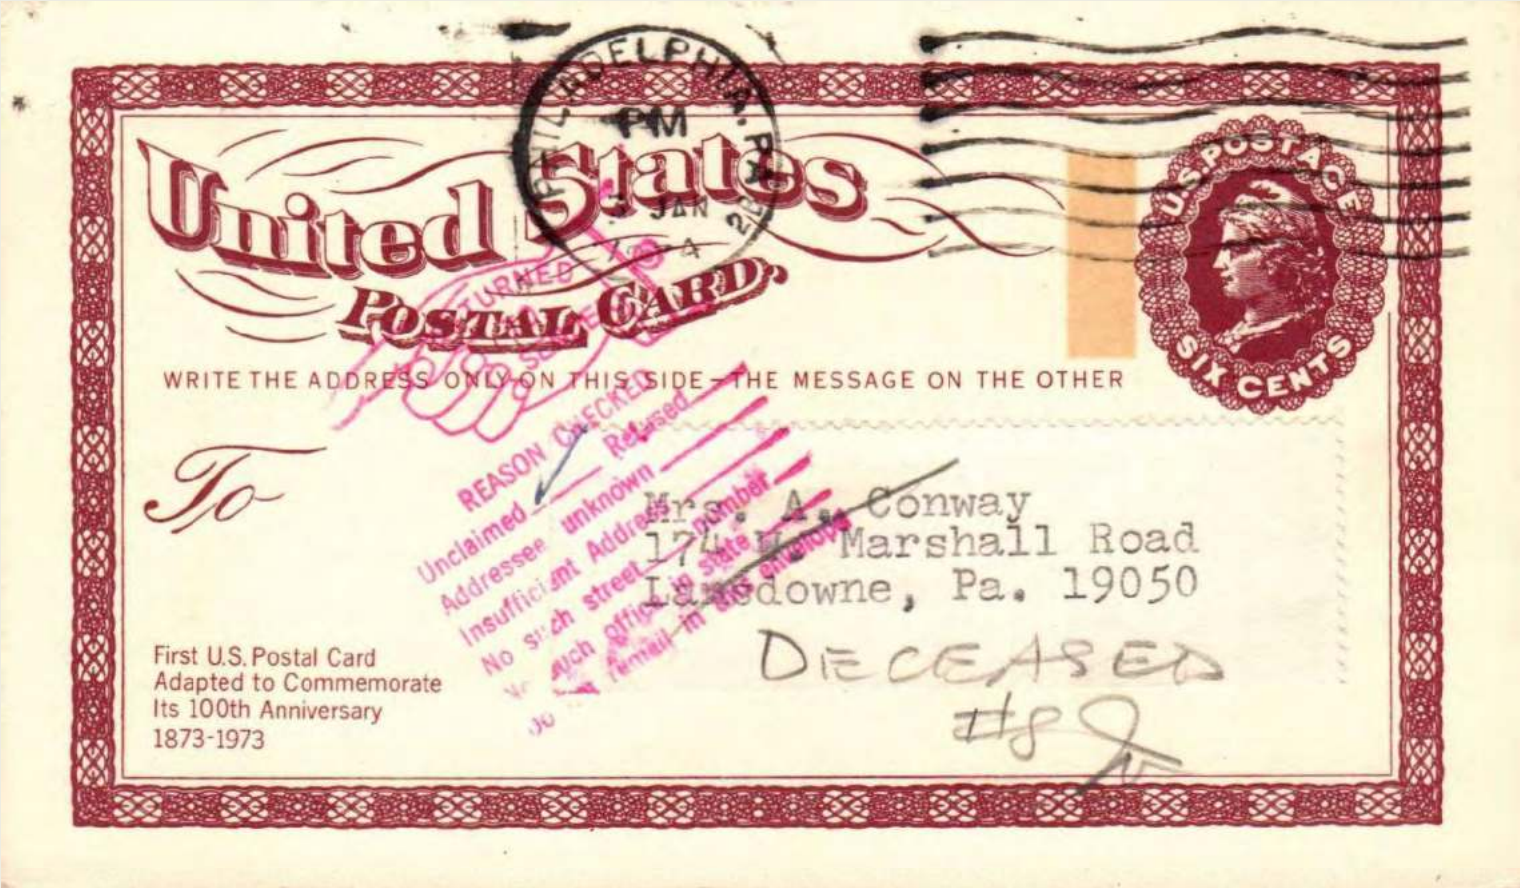 PHILADELPHIA, PA
PM
3 JAN
1974
United States
Postal Card,
U.S. POSTAGE
SIX CENTS
WRITE THE ADDRESS ONLY ON THIS SIDE—THE MESSAGE ON THE OTHER
RETURNED
TO
REASON CHECKED
Unclaimed Refused
Addressee unknown
Insufficient Address
No such street number
No such office in state
Do not remail in this envelope
To
Mrs. A. Conway
174 W. Marshall Road
Lansdowne, Pa. 19050
DECEASED
#8
First U.S. Postal Card
Adapted to Commemorate
Its 100th Anniversary
1873-1973